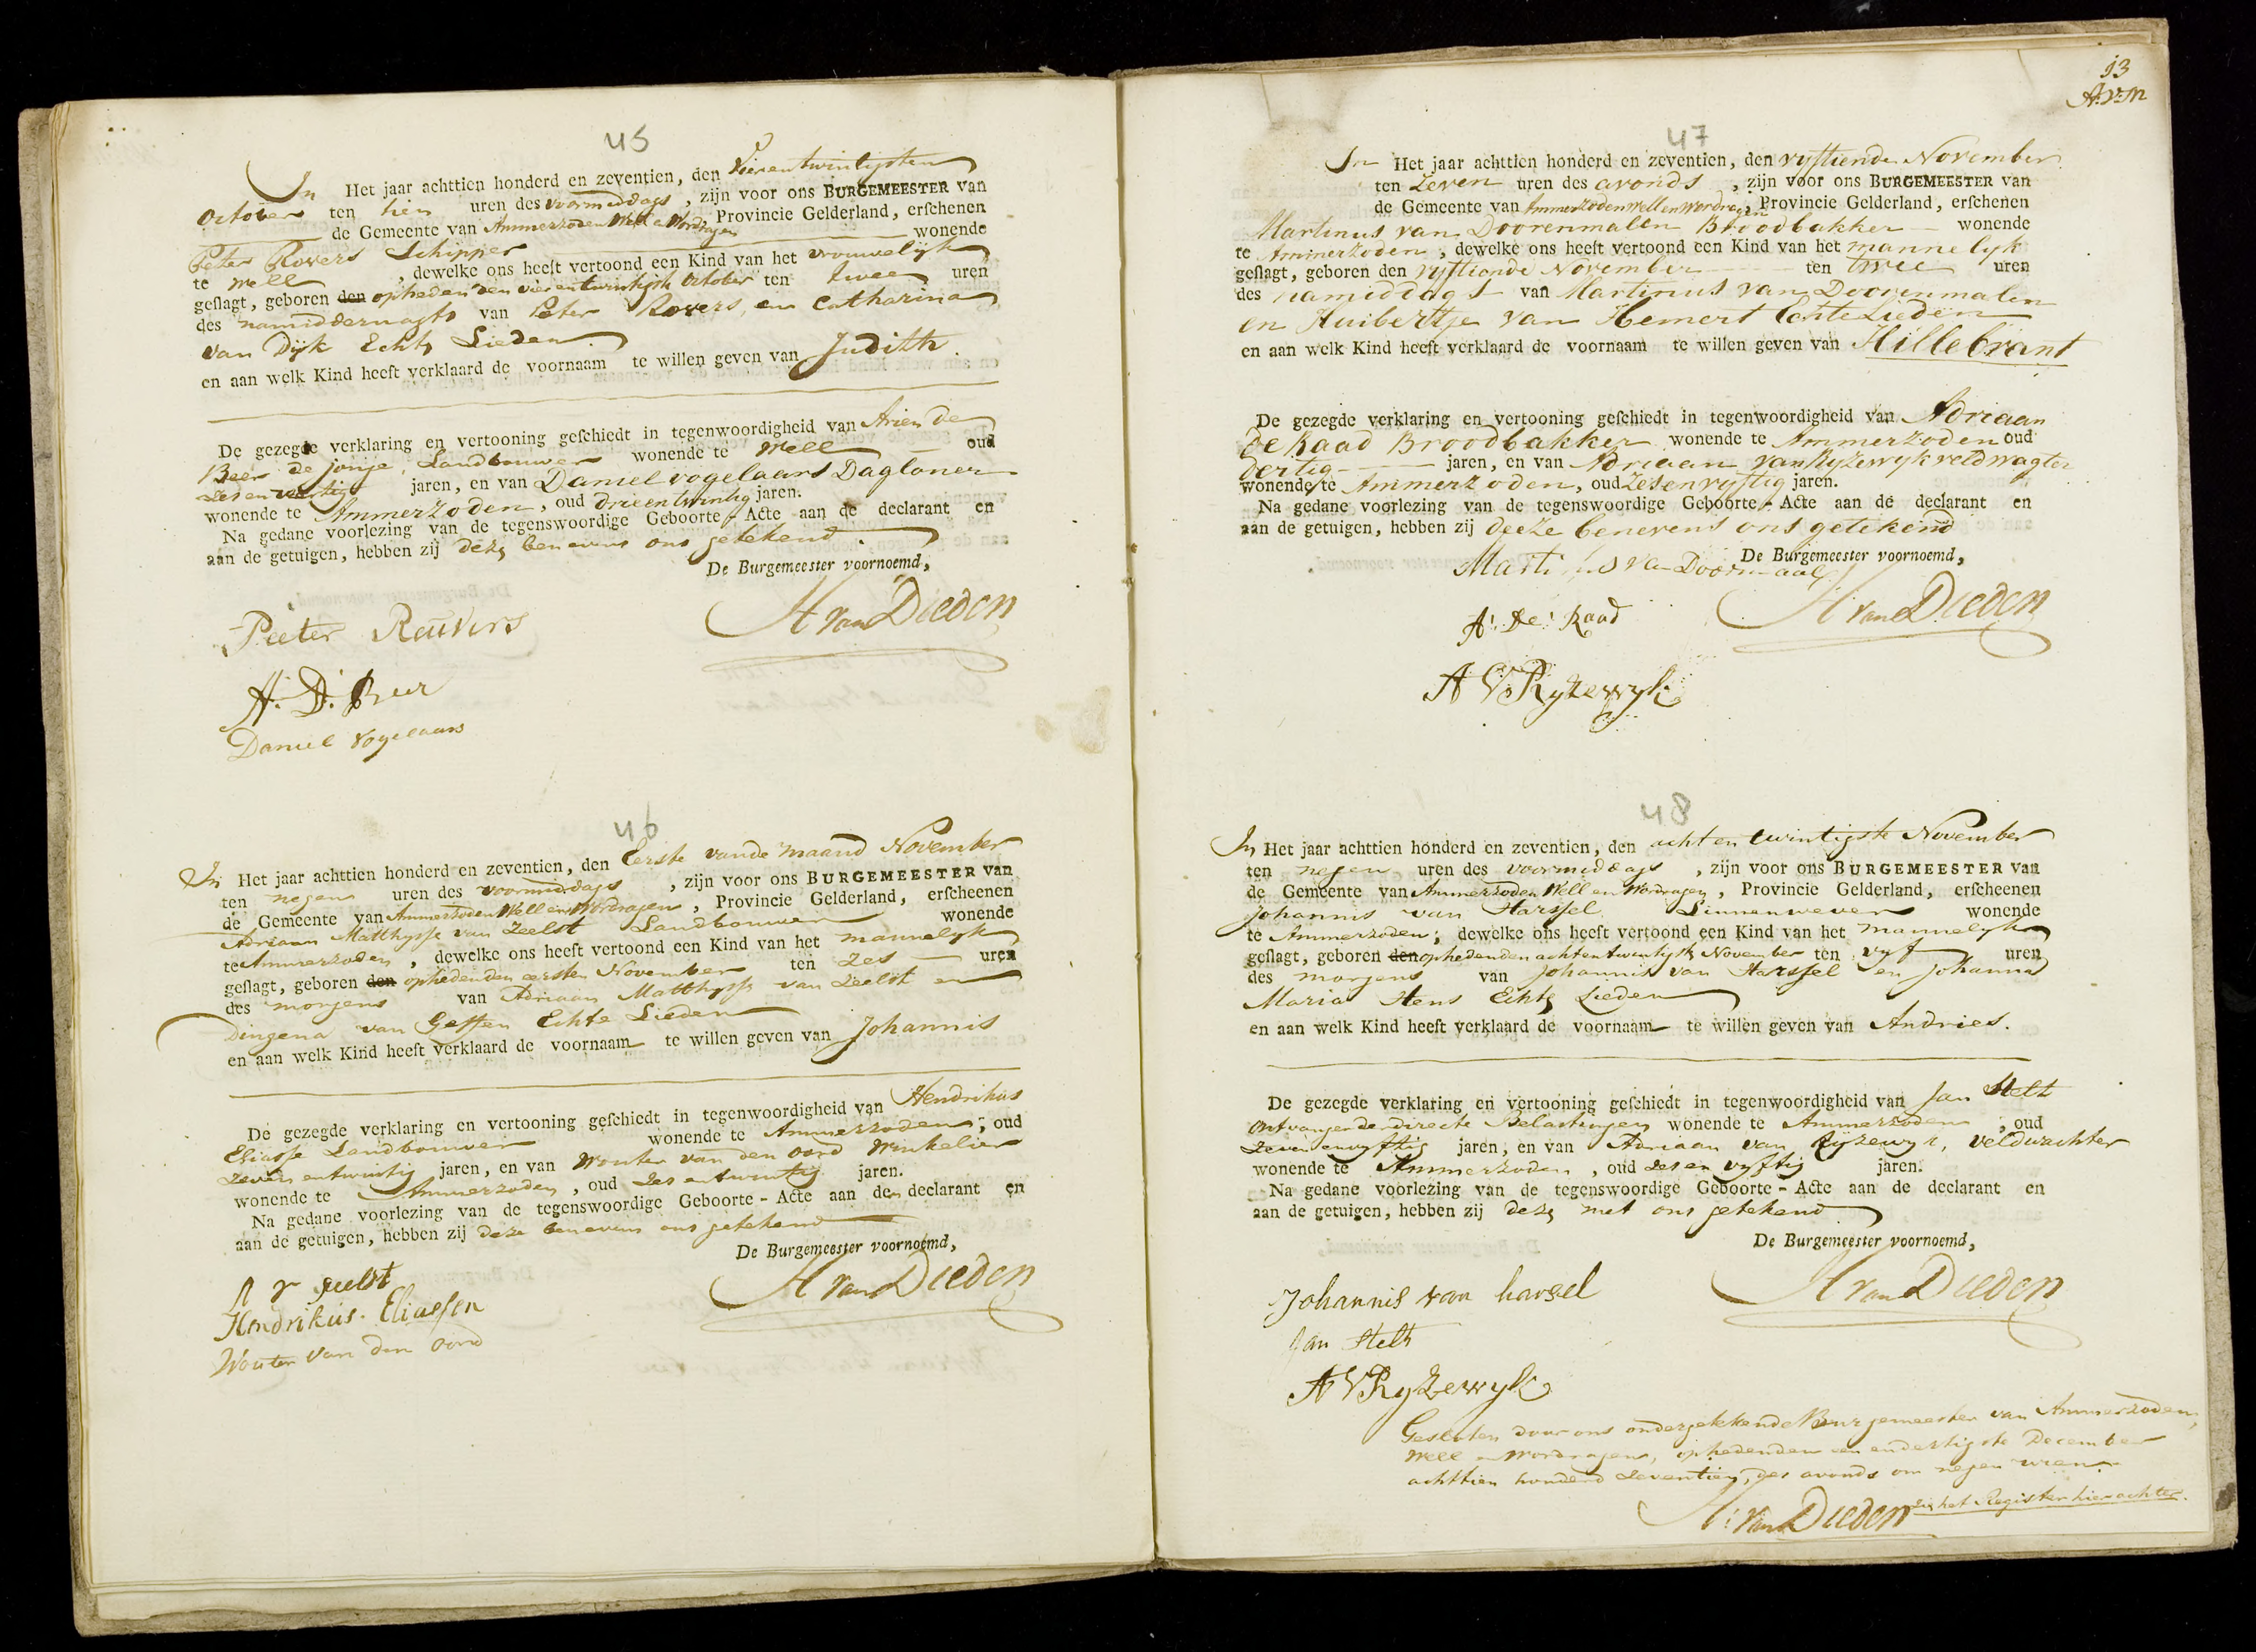 45
In Het jaar achttien honderd en zeventien, den Vierentwintigsten
October ten tien uren des voormiddags, zijn voor ons BURGEMEESTER van
de Gemeente van Ammerzoden Well en Wordragen, Provincie Gelderland, erschenen
Peter Rovers Schipper wonende
te Well, dewelke ons heeft vertoond een Kind van het vrouwelijk
geslagt, geboren den opheden den vierentwintigste October ten twee uren
des namiddernagts van Peter Rovers, en Catharina
van Dijk Echte Lieden
en aan welk Kind heeft verklaard de voornaam te willen geven van Judith.
De gezegde verklaring en vertooning geschiedt in tegenwoordigheid van Arien de
Beer de jonge, Landbouwer wonende te Well oud
jaren, en van Daniel vogelaars Dagloner
wonende te Ammerzoden, oud drieentwintig jaren.
Na gedane voorlezing van de tegenswoordige Geboorte-Acte aan de declarant en
aan de getuigen, hebben zij deze benevens ons getekend.
De Burgemeester voornoemd,
H van Dieden
Peeter Reuvers
A. D. Beer
Daniel Vogelaars
46
In Het jaar achttien honderd en zeventien, den Eerste vande maand November
ten negen uren des voormiddags, zijn voor ons BURGEMEESTER van
de Gemeente van Ammerzoden Well en Wordragen, Provincie Gelderland, erscheenen
Adriaan Matthysse van Zeelst Landbouwer wonende
te Ammerzoden, dewelke ons heeft vertoond een Kind van het mannelyk
geslagt, geboren den opheden den eersten November ten zes uren
des morgens van Adriaan Matthysse van Zeelst en
Dingena van Geffen Echte Lieden
en aan welk Kind heeft verklaard de voornaam te willen geven van Johannis
De gezegde verklaring en vertooning geschiedt in tegenwoordigheid van Hendrikus
Eliasse Landbouwer wonende te Ammerzoden; oud
zeven entwintig jaren, en van Wouter van den oord Winkelier
wonende te Ammerzoden, oud zes entwintig jaren.
Na gedane voorlezing van de tegenswoordige Geboorte-Acte aan den declarant en
aan de getuigen, hebben zij deze benevens ons getekend
De Burgemeester voornoemd,
H van Dieden
A v zeelst
Hendrikus Eliassen
Wouter van den oord
13
A.v.M
47
In Het jaar achttien honderd en zeventien, den vyftiende November
ten zeven uren des avonds, zijn voor ons BURGEMEESTER van
de Gemeente van Ammerzoden Well en Wordragen, Provincie Gelderland, erschenen
Martinus van Doorenmalen Broodbakker wonende
te Ammerzoden, dewelke ons heeft vertoond een Kind van het mannelyk
geslagt, geboren den vyftiende November ten twee uren
des namiddags van Martinus van Doorenmalen
en Huibertje van Hemert Echte Lieden
en aan welk Kind heeft verklaard de voornaam te willen geven van Hillebrant
De gezegde verklaring en vertooning geschiedt in tegenwoordigheid van Adriaan
de Raad Broodbakker wonende te Ammerzoden oud
dertig jaren, en van Adriaan van Ryzewyk veldwagter
wonende te Ammerzoden, oud zesenvyftig jaren.
Na gedane voorlezing van de tegenswoordige Geboorte-Acte aan de declarant en
aan de getuigen, hebben zij deeze benevens ons getekend
De Burgemeester voornoemd,
Martinus van Doormaal
H van Dieden
A: De: Raad
A V Ryzewyk
48
In Het jaar achttien honderd en zeventien, den acht en twintigste November
ten negen uren des voormiddags, zijn voor ons BURGEMEESTER van
de Gemeente van Ammerzoden Well en Wordragen, Provincie Gelderland, erscheenen
Johannis van Harssel Linnenwever wonende
te Ammerzoden; dewelke ons heeft vertoond een Kind van het mannelyk
geslagt, geboren den opheden den achtentwintigste November ten vyf uren
des morgens van Johannis van Harssel en Johanna
Maria Stens Echte Lieden
en aan welk Kind heeft verklaard de voornaam te willen geven van Andries.
De gezegde verklaring en vertooning geschiedt in tegenwoordigheid van Jan Stelt
Ontvanger der directe Belastingen wonende te Ammerzoden, oud
zevenenvyftig jaren, en van Adriaan van Ryzewyk, veldwachter
wonende te Ammerzoden, oud zes en vyftig jaren.
Na gedane voorlezing van de tegenswoordige Geboorte-Acte aan de declarant en
aan de getuigen, hebben zij deze met ons getekend
De Burgemeester voornoemd,
H van Dieden
Johannis van harsel
Jan Stelt
A V Ryzewyk
Gesloten door ons ondergetekende Burgemeester van Ammerzoden,
Well en Wordragen, opheden den een endertigste December
achttien honderd zeventien, des avonds om negen uren
H: van Dieden Zie het Register hier achter.